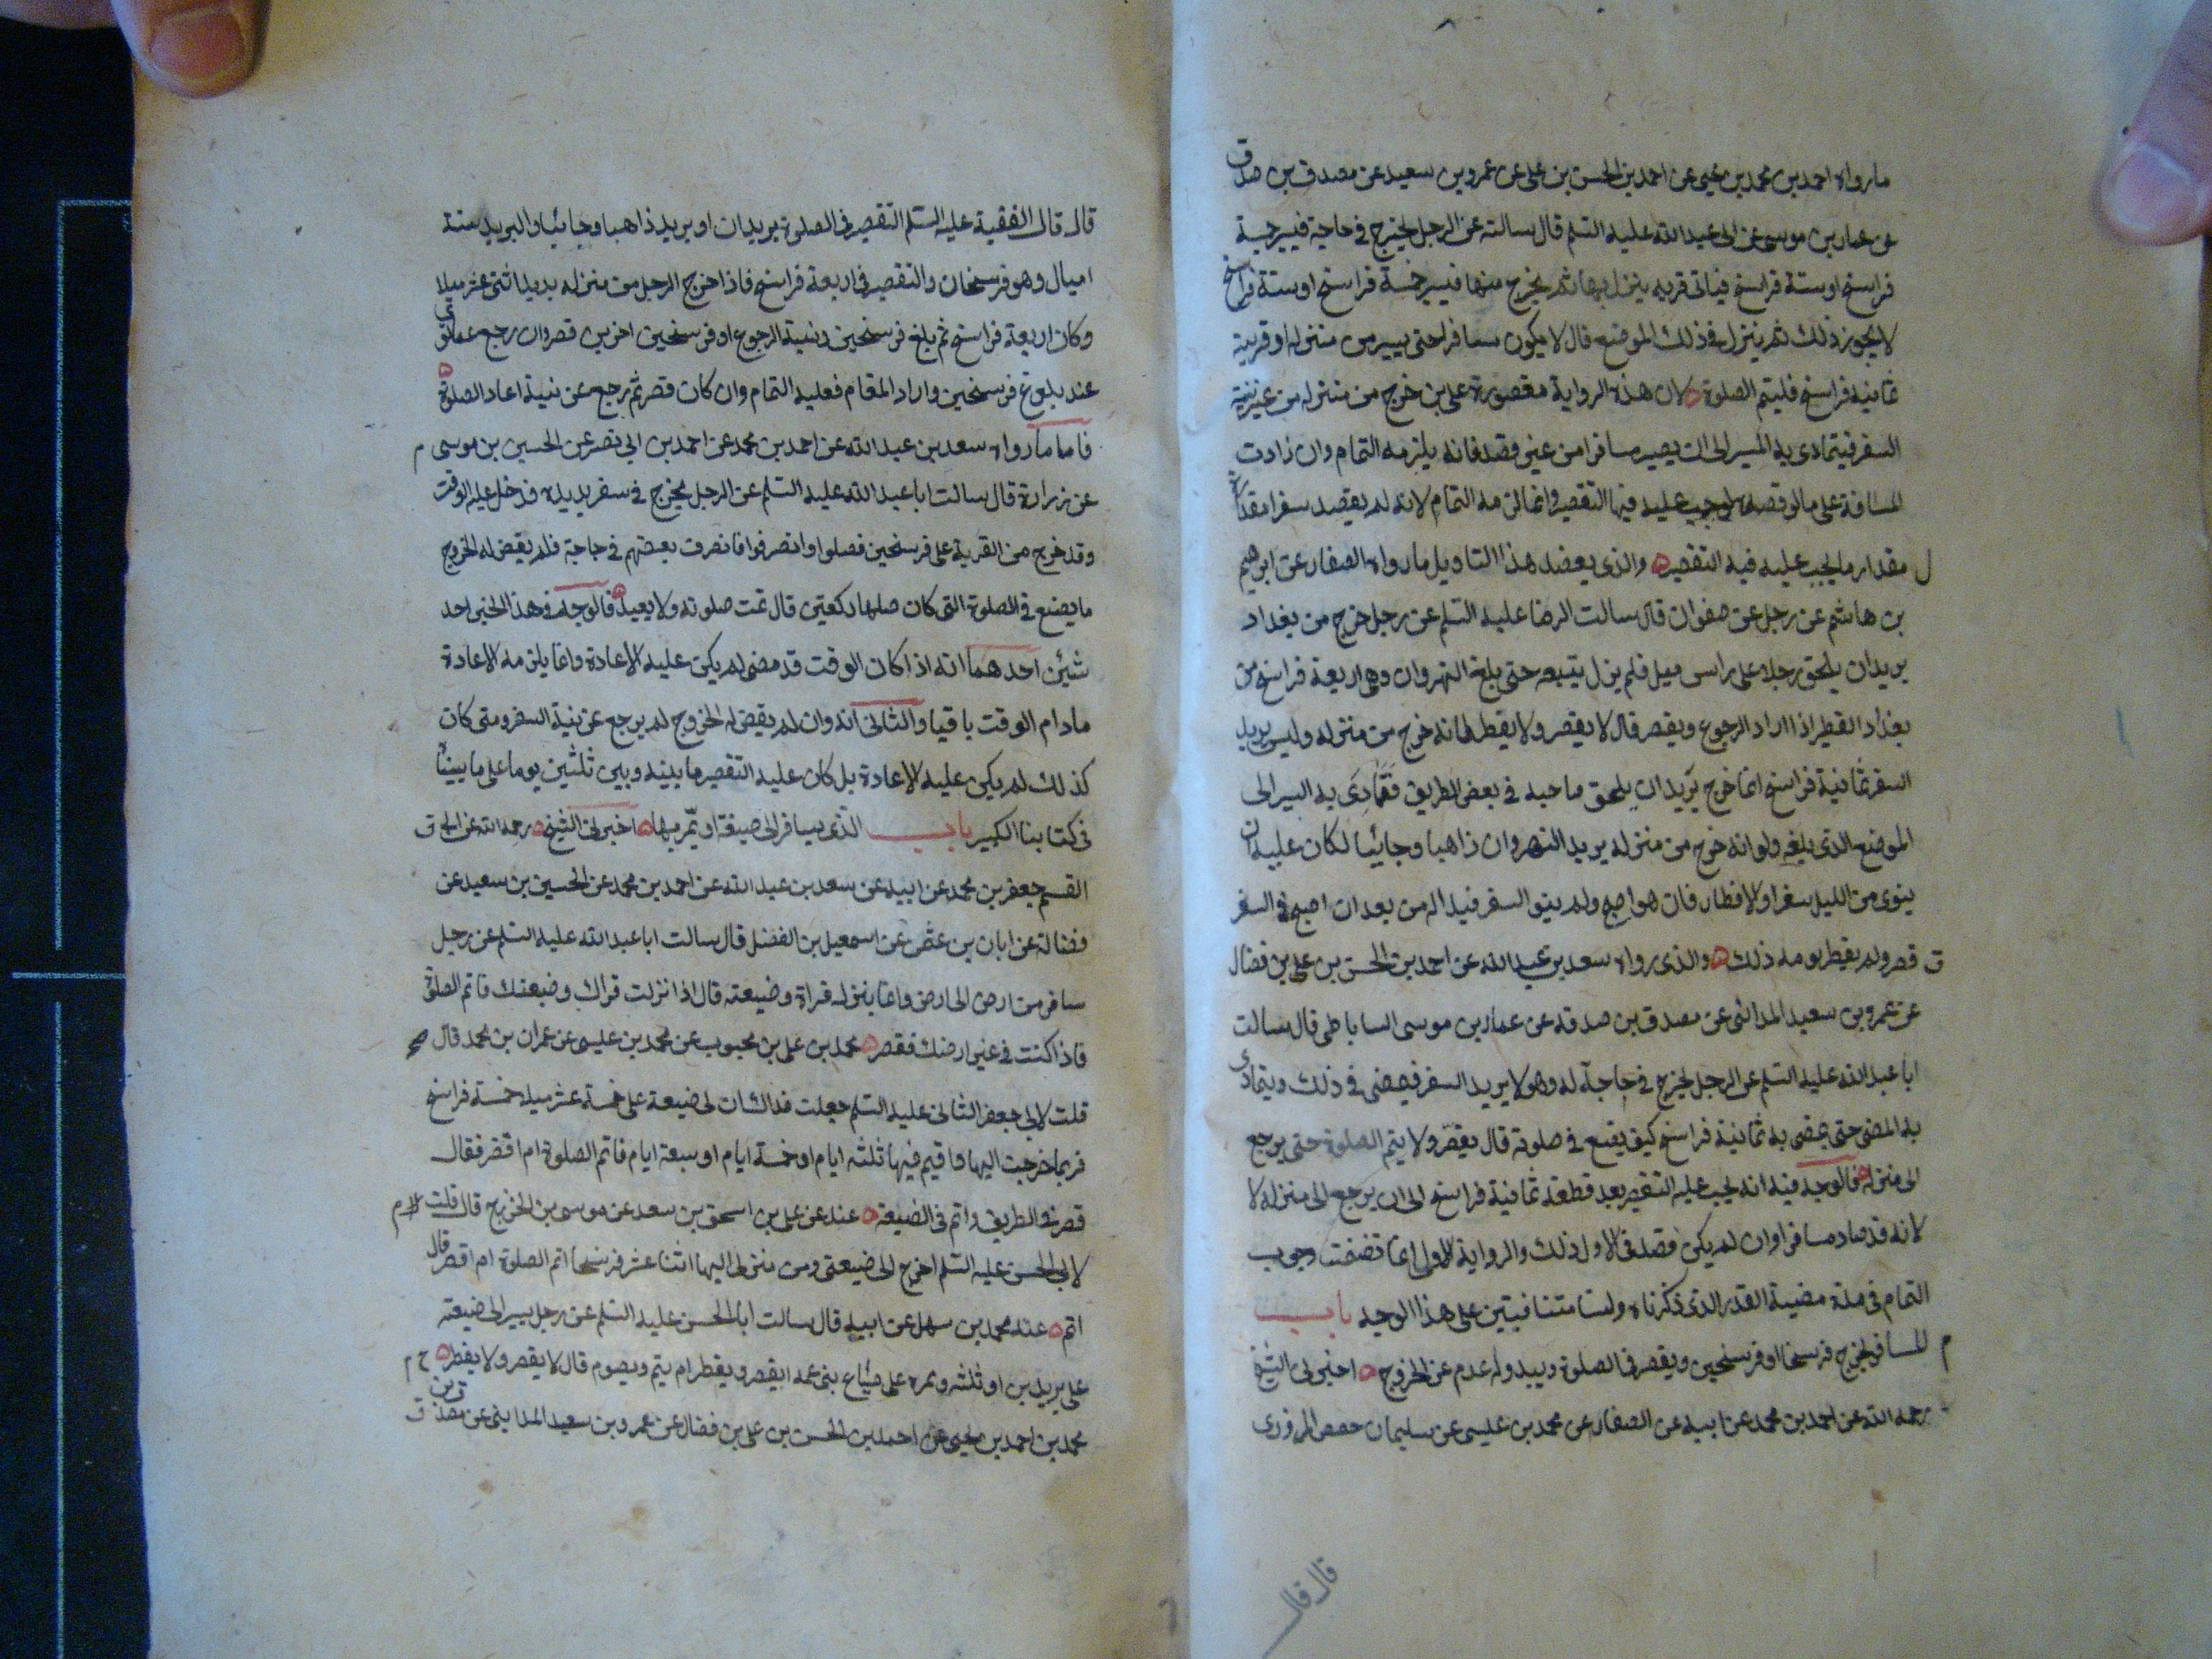 ما رواه احمد بن محمد بن يحيى عن احمد بن الحسن بن على عن عمرو بن سعيد عن مصدق بن صدق
عن عمار بن موسى عن ابى عبد الله عليه السلم قال سالته عن الرجل يخرج فى حاجة فيسير خمسة
فراسخ او ستة فراسخ فياتى قرية ينزل بها ثم يخرج منها فيسير خمسة فراسخ او ستة فراسخ
لا يجوز ذلك ثم ينزل فى ذلك الموضع قال لا يكون مسافرا حتى يسير من منزله او قريته
ثمانية فراسخ فليتم الصلوة لان هذه الرواية مقصورة على من خرج من منزله من غير نية
السفر فيتمادى به المسير الى ان يصير مسافرا من غير قصد فانه يلزمه التمام وان زادت
المسافة على ما لو قصده لوجب عليه فيها التقصير وانما لزمه التمام لانه لم يقصد سفرا مقداره
ل مقدار ما يجب عليه فيه التقصير والذى يعضد هذا التاويل ما رواه الصفار عن ابرهيم
بن هاشم عن رجل عن صفوان قال سالت الرضا عليه السلم عن رجل خرج من بغداد
يريد ان يلحق رجلا على راس ميل فلم يزل يتبعه حتى بلغ النهروان وهى اربعة فراسخ من
بغداد ايفطر اذا اراد الرجوع ويقصر قال لا يقصر ولا يفطر لانه خرج من منزله وليس يريد
السفر ثمانية فراسخ انما خرج يريد ان يلحق صاحبه فى بعض الطريق فتمادى به السير الى
الموضع الذى بلغه ولو انه خرج من منزله يريد النهروان ذاهبا وجائيا لكان عليه ان
ينوى من الليل سفرا والافطار فان هو اصبح ولم ينو السفر فبدا له من بعد ان اصبح فى السفر
ق قصر ولم يفطر يومه ذلك والذى رواه سعد بن عبد الله عن احمد بن الحسن بن على بن فضال
عن عمرو بن سعيد المدائنى عن مصدق بن صدقه عن عمار بن موسى الساباطى قال سالت
ابا عبد الله عليه السلم عن الرجل يخرج فى حاجة له وهو لا يريد السفر فيمضى فى ذلك ويتمادى
به المضى حتى يمضى به ثمانية فراسخ كيف يصنع فى صلوته قال يقصر ولا يتم الصلوة حتى يرجع
الى منزله فالوجه فيه انه يجب عليه التقصير بعد قطعه ثمانية فراسخ الى ان يرجع الى منزله لا
لانه قد صار مسافرا وان لم يكن قصد فى الاول ذلك والرواية الاولى انما تضمنت وجوب
التمام فى مدة مضيه القدر الذى ذكرناه وليستا متنافيتين على هذا الوجه باب
م المسافر يخرج فرسخا او فرسخين ويقصر فى الصلوة ويبدو له عن الخروج اخبرنى الشيخ
رحمه الله عن احمد بن محمد عن ابيه عن الصفار عن محمد بن عيسى عن سليمان حفص المروزى
قال قال
قال قال الفقيه عليه السلم التقصير فى الصلوة بريدان او بريد ذاهبا وجائيا والبريد ستة
اميال وهو فرسخان والتقصير فى اربعة فراسخ فاذا خرج الرجل من منزله يريد اثنى عشر ميلا
وكان اربعة فراسخ ثم بلغ فرسخين ونيته الرجوع او فرسخين اخرين قصر وان رجع عما نوى
عند بلوغ فرسخين واراد المقام فعليه التمام وان كان قصر ثم رجع عن نيته اعاد الصلوة
فاما ما رواه سعد بن عبد الله عن احمد بن محمد عن احمد بن ابى نصر عن الحسين بن موسى م
عن زرارة قال سالت ابا عبد الله عليه السلم عن الرجل يخرج فى سفر يريده فدخل عليه الوقت
وقد خرج من القرية على فرسخين فصلوا وانصرفوا فانصرف بعضهم فى حاجة فلم يقض له الخروج
ما يصنع فى الصلوة التى كان صلها ركعتين قال تمت صلوته ولا يعيد فالوجه فى هذا الخبر احد
شيئن احدهما انه اذا كان الوقت قد مضى لم يكن عليه الاعادة وانما يلزمه الاعادة
ما دام الوقت باقيا والثانى انه وان لم يقض له الخروج لم يرجع عن نية السفر ومتى كان
كذلك لم يكن عليه الاعادة بل كان عليه التقصير ما بينه وبين ثلثين يوما على ما بينا
فى كتابنا الكبير باب الذى يسافر الى ضيعته او يمر بها اخبرنى الشيخ رحمه الله عن ابى ق
القسم جعفر بن محمد عن ابيه عن سعد بن عبد الله عن احمد بن محمد عن الحسين بن سعيد عن
فضالة عن ابان بن عثمن عن اسمعيل بن الفضل قال سالت ابا عبد الله عليه السلم عن رجل
سافر من ارض الى ارض وانما ينزل قراه وضيعته قال اذا نزلت قراك وضيعتك فاتم الصلوة
فاذا كنت فى غير ارضك فقصر محمد بن على بن محبوب عن محمد بن عيسى عن عمران بن محمد قال
قلت لابى جعفر الثانى عليه السلم جعلت فداك ان لى ضيعة على خمسة عشر ميلا خمسة فراسخ
فربما خرجت اليها فاقيم فيها ثلثه ايام او خمسة ايام او سبعة ايام فاتم الصلوة ام اقصر فقال
قصر فى الطريق واتم فى الضيعة عنه عن على بن اسحق بن سعد عن موسى بن الخزرج قال قلت م
لابى الحسن عليه السلم اخرج الى ضيعتى ومن منزلى اليها اثنا عشر فرسخا اتم الصلوة ام اقصر قال
اتم عنه محمد بن سهل عن ابيه قال سالت ابا الحسن عليه السلم عن رجل يسير الى ضيعته
على بريدين او ثلثه وممره على ضياع بنى عمه ايقصر ويفطر ام يتم ويصوم قال لا يقصر ولا يفطر ح م
محمد بن احمد بن يحيى عن احمد بن الحسن بن على بن فضال عن عمرو بن سعيد المداينى عن مصدق بن ق